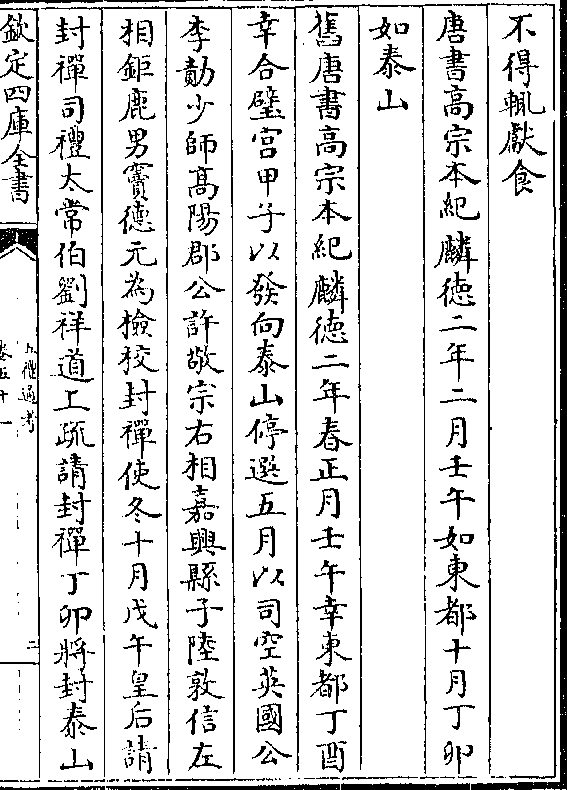 不得輒獻食
唐書高宗本紀麟徳二年二月壬午如東都十月丁卯
如泰山
舊唐書高宗本紀麟徳二年春正月壬午幸東都丁酉
幸合璧宮甲子以發向泰山停選五月以司空英國公
李勣少師髙陽郡公許敬宗右相嘉興縣子陸敦信左
相鉅鹿男竇德元為檢校封禪使冬十月戊午皇后請
封禪司禮太常伯劉祥道上疏請封禪丁卯將封泰山
欽定四庫全書
五禮通考
卷五十一
二